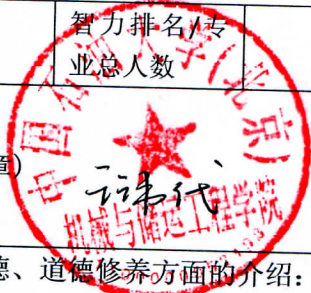 智力排名/专
业总人数
中国石油大学(北京)
章)
机械与储运工程学院
德、道德修养方面的介绍：